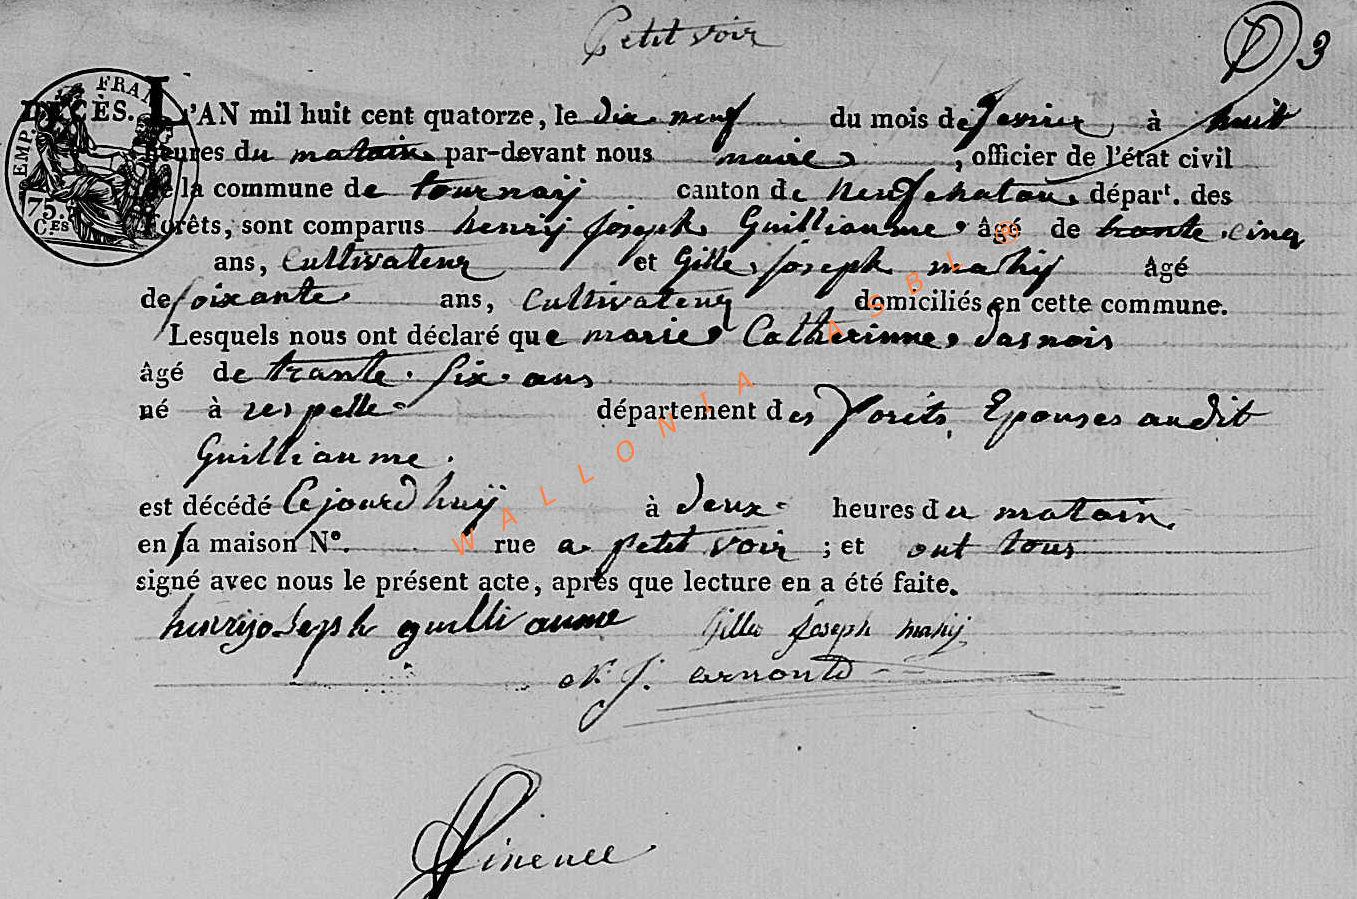 Petit voir
D 3
DÉCÈS. L'AN mil huit cent quatorze, le dix neuf du mois de Janvier à huit
heures du matain par-devant nous maire, officier de l'état civil
de la commune de tournaij canton de Neufchatau, départ. des
Forêts, sont comparus henrij Joseph Guilliaume âgé de trante cinq
ans, Cultivateur et Gille Joseph mahij âgé
de soixante ans, Cultivateur domiciliés en cette commune.
Lesquels nous ont déclaré que marie Catherinne dasnois
âgé de trante six ans
né à respelle département des Forits, Epouses audit
Guilliaume.
est décédé Cejourdhuij à deux heures du matain
en sa maison N°. rue a petit voir ; et ont tous
signé avec nous le présent acte, après que lecture en a été faite.
henrijoseph guilliaume Gille Joseph mahij
J. arnould
FRAN
EMP.
75.
CES
WALLONIA ASBL ©